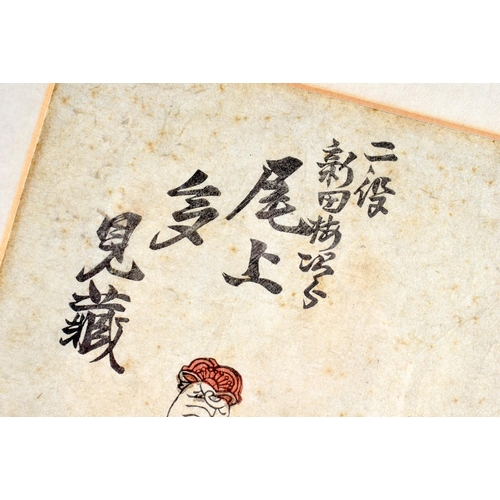 二役
新田梅次郎
尾上
多
見藏